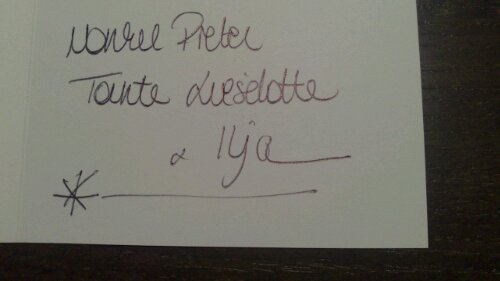 Nonkel Pieter
Tante Lieselotte
& Ilja